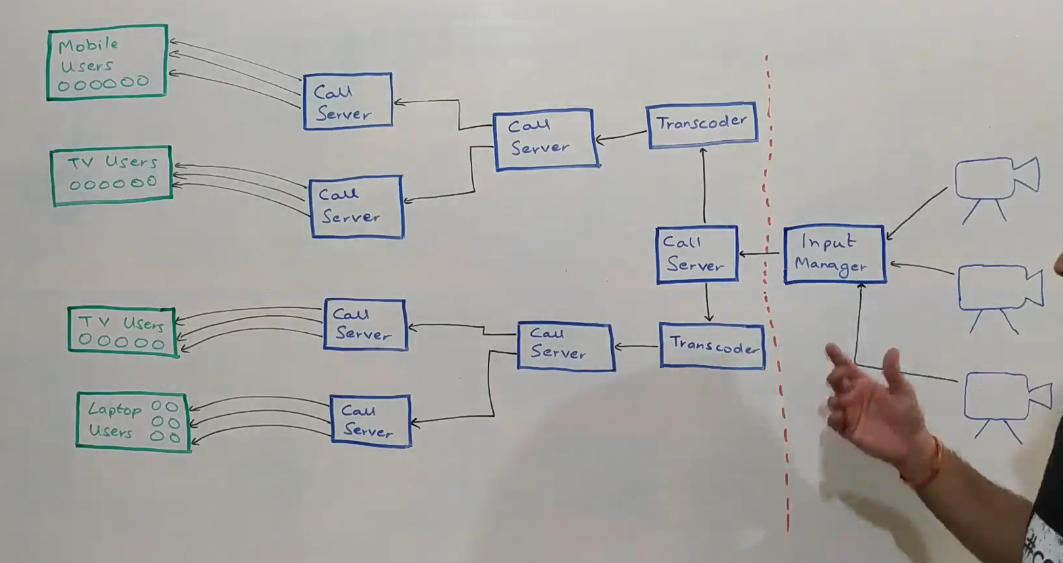 Mobile
Users
Call
Server
Call
Server
Transcoder
TV Users
Call
Server
Call
Server
Input
Manager
TV Users
Call
Server
Call
Server
Transcoder
Laptop
Users
Call
Server